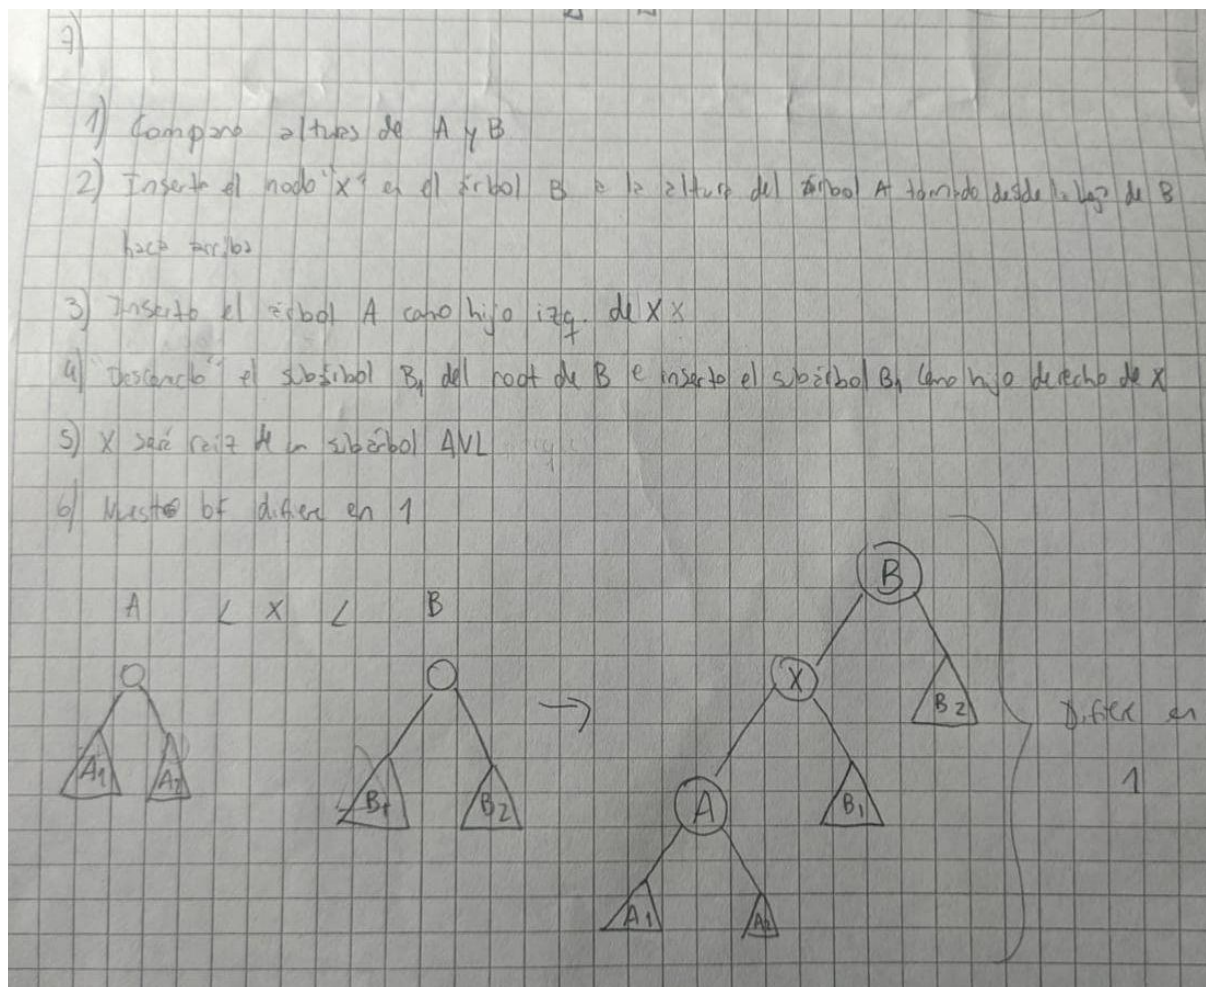 7)
1) Comparo alturas de A y B
2) Inserto el nodo "x" en el árbol B a la altura del árbol A tomado desde la hoja de B
hacia arriba
3) Inserto el árbol A como hijo izq. de X
4) "Desconecto" el subárbol B1 del root de B e inserto el subárbol B1 como hijo derecho de X
5) X será raiz de un subárbol AVL
6) Nuestro bf difiere en 1
A < X < B
B
X
B2
Difiere en
1
A1 A2
B1 B2
→
A
B1
A1
A2